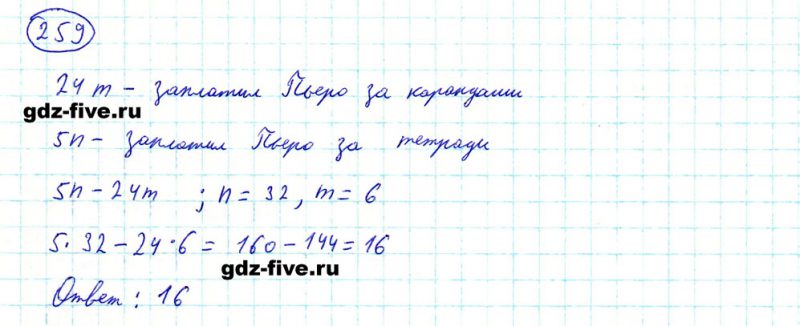 259
24m - заплатил Пьеро за карандаши
gdz-five.ru
5n - заплатил Пьеро за тетради
5n - 24m ; n = 32, m = 6
5·32 - 24·6 = 160 - 144 = 16
gdz-five.ru
Ответ: 16